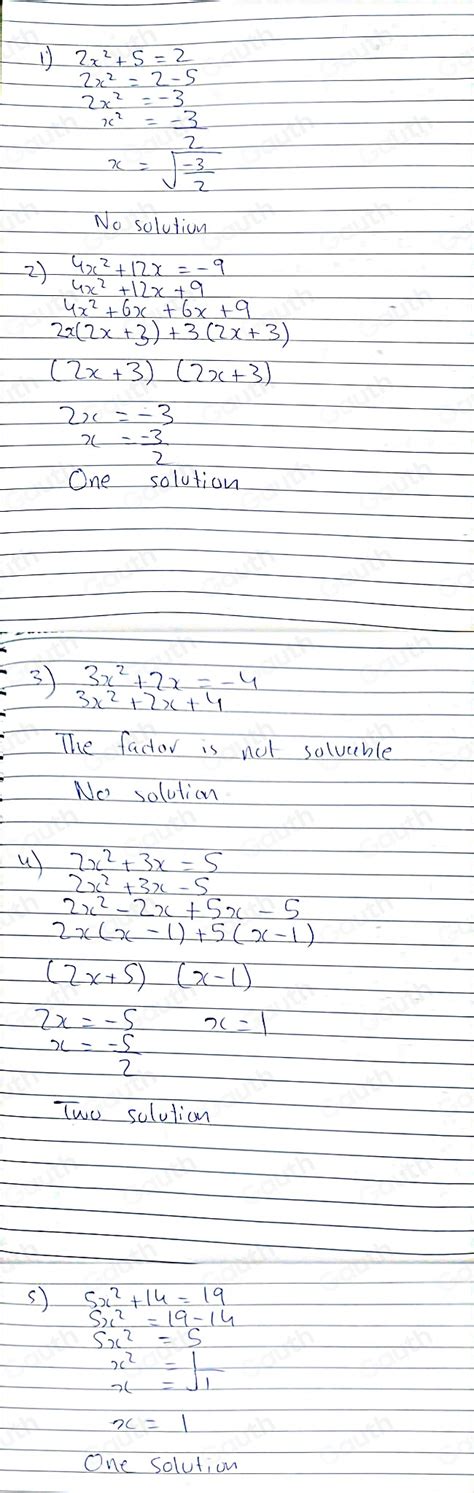 1) 2x² + 5 = 2
2x² = 2 - 5
2x² = -3
x² = -3/2
x = √(-3/2)
No solution
2) 4x² + 12x = -9
4x² + 12x + 9
4x² + 6x + 6x + 9
2x(2x + 3) + 3(2x + 3)
(2x + 3) (2x + 3)
2x = -3
x = -3/2
One solution
3) 3x² + 2x = -4
3x² + 2x + 4
The factor is not solvable
No solution.
4) 2x² + 3x = 5
2x² + 3x - 5
2x² - 2x + 5x - 5
2x(x - 1) + 5(x - 1)
(2x + 5) (x - 1)
2x = -5 x = 1
x = -5/2
Two solution
5) 5x² + 14 = 19
5x² = 19 - 14
5x² = 5
x² = 1
x = √1
x = 1
One solution